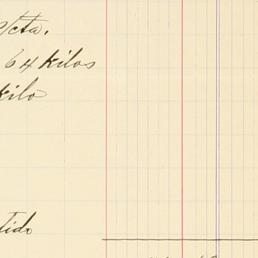 cta.
64 kilos
kilo
tido